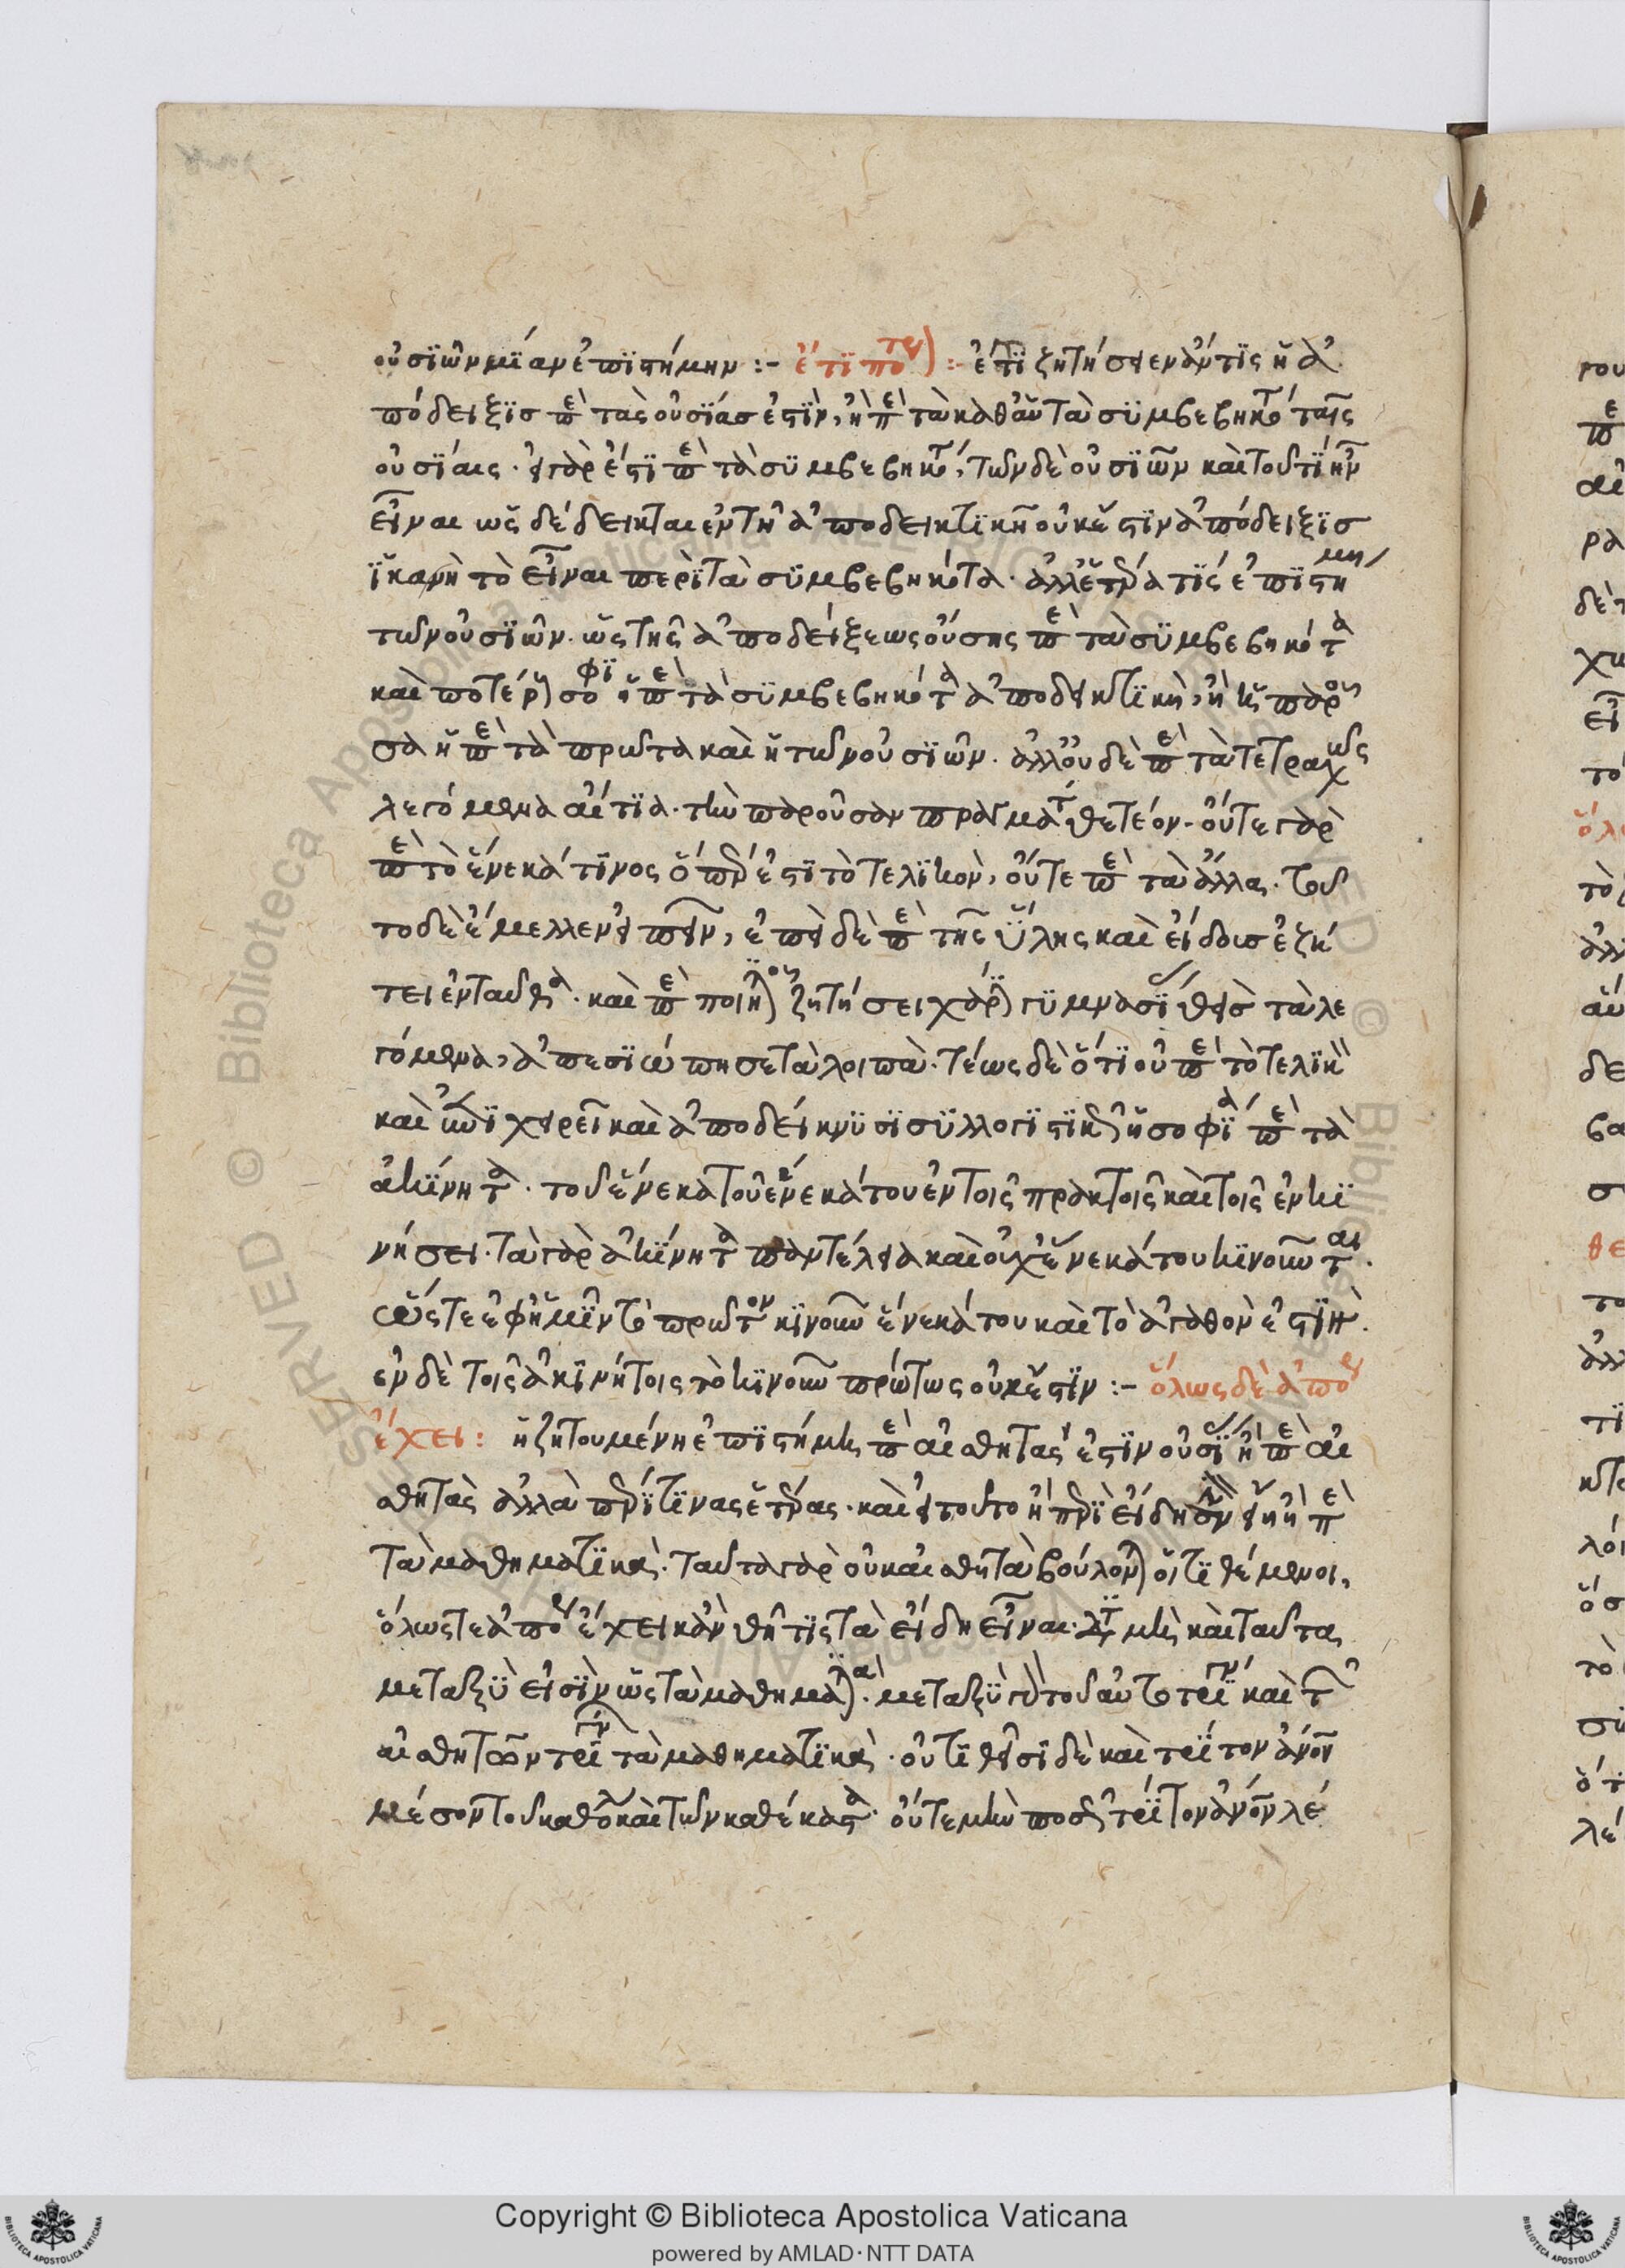 οὐσιῶν μίαν ἐπιστήμην :- ἔτι πότερον :- ἔτι ζητήσειεν ἄν τις ἡ ἀ
πόδειξις περὶ τὰς οὐσίας ἐστὶν, ἢ περὶ τὰ καθ' αὑτὰ συμβεβηκότα ταῖς
οὐσίαις. εἰ γὰρ ἔστι περὶ τὰ συμβεβηκότα, τῶν δὲ οὐσιῶν καὶ τοῦ τί ἦν
εἶναι ὡς δέδεικται ἐν τῇ ἀποδεικτικῇ οὐκ ἔστιν ἀπόδειξις
ἱκανὴ τὸ εἶναι περὶ τὰ συμβεβηκότα. ἀλλ' ἑτέρα τίς ἐπιστήμη
τῶν οὐσιῶν. ὡς τῆς ἀποδείξεως οὔσης περὶ τὰ συμβεβηκότα
καὶ πότερον σοφία ἡ περὶ τὰ συμβεβηκότα ἀποδεικτικὴ, ἢ καὶ παροῦ
σα ἡ περὶ τὰ πρῶτα καὶ ἡ τῶν οὐσιῶν. ἀλλ' οὐδὲ περὶ τὰ τετραχῶς
λεγόμενα αἴτια. τὴν παροῦσαν πραγματείαν θετέον. οὔτε γὰρ
περὶ τὸ ἕνεκά τινος ὅπερ ἐστὶ τὸ τελικὸν, οὔτε περὶ τὰ ἄλλας. τοῦ
το δὲ ἔμελλεν εἰπεῖν, ἐπεὶ δὲ περὶ τῆς ὕλης καὶ εἴδους ἐζή
τει ἐνταῦθα. καὶ περὶ ποιητικοῦ ζητήσει χάριν γυμνασίας θεὶς τὰ λε
γόμενα, ἀπεσιώπησε τὰ λοιπά. τέως δὲ ὅτι οὐ περὶ τὸ τελικὸν
καὶ ἐπιχειρεῖ καὶ ἀποδείκνυσι συλλογιστικῶς ἡ σοφία περὶ τὰ
ἀκίνητα. τὸ δ' ἕνεκα τοῦ ἕνεκά του ἐν τοῖς πρακτοῖς καὶ τοῖς ἐν κι
νήσει. τὰ γὰρ ἀκίνητα παντέλεια καὶ οὐχ ἕνεκά του κινοῦνται.
ὥστε ἐφ' ἡμῖν τὸ πρῶτον κινοῦν ἕνεκά του καὶ τὸ ἀγαθὸν ἐστὶν.
ἐν δὲ τοῖς ἀκινήτοις τὸ κινοῦν πρώτως οὐκ ἔστιν :- ὅλως δὲ ἀπορίαν
ἔχει : ἡ ζητουμένη ἐπιστήμη περὶ αἰσθητάς ἐστιν οὐσίας ἢ περὶ αἰ
σθητὰς ἀλλὰ περί τινας ἑτέρας. καὶ εἰ τοῦτο ἢ περὶ εἴδη ἂν εἴη ἢ περὶ
τὰ μαθηματικά. ταῦτα γὰρ οὐκ αἰσθητὰ βούλονται οἱ τιθέμενοι,
ὅλως τε ἀπορίαν ἔχει κἂν θῇ τις τὰ εἴδη εἶναι. διὰ τί μὴ καὶ ταῦτα
μεταξύ εἰσιν ὡς τὰ μαθηματικά. μεταξὺ γὰρ τοῦ αὐτοτριγώνου καὶ τῶν
αἰσθητῶν τριγώνων τὰ μαθηματικά. οὐ τιθεῖσι δὲ καὶ τρίτον ἄνθρωπον
μέσον τοῦ καθόλου καὶ τῶν καθέκαστα. οὔτε μὴν ποῦ τρίτον ἄνθρωπον λέ